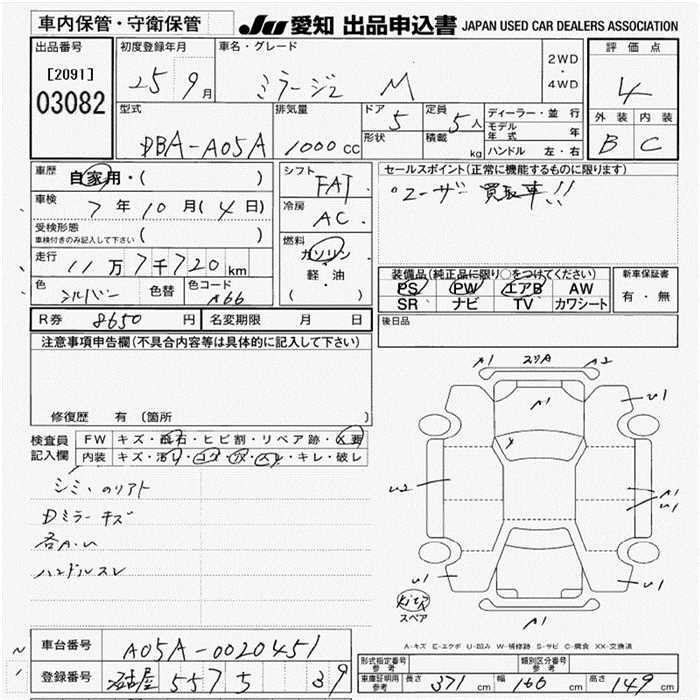 車内保管・守衛保管
JU 愛知 出品申込書 JAPAN USED CAR DEALERS ASSOCIATION
出品番号
[2091]
03082
初度登録年月
25 9月
車名・グレード
ミラージュ M
2WD
・
4WD
評価点
4
外装 内装
B C
型式
DBA-A05A
排気量
1000cc
ドア 5
形状
定員 5人
積載 kg
ディーラー・並行
モデル年式 年
ハンドル 左・右
車歴
自家用・( )
車検
7年10月(4日)
受検形態
車検付きのみ記入して下さい ( )
走行
11万7千720km
色
シルバー
色替
色コード
A66
シフト
FAT
冷房
AC
燃料
ガソリン
・
軽・油
( )
セールスポイント(正常に機能するものに限ります)
ユーザー買取車!!
装備品(純正品に限り○をつけてください)
PS PW エアB AW
SR ナビ TV カワシート
新車保証書
有・無
後日品
R券 8650円 名変期限 月 日
注意事項申告欄(不具合内容等は具体的に記入して下さい)
修復歴 有(箇所 )
検査員
記入欄
FW キズ・飛石・ヒビ割・リペア跡・X要
内装 キズ・汚レ・コゲ・穴・スレ・キレ・破レ
シミ・のりアト
Dミラーキズ
各A.U
ハンドルスレ
A1 スリA A2
A1
U1
U2
A1
U1
U1
U1
A1
キズ
スペア
A-キズ E-エクボ U-凹み W-補修跡 S-サビ C-腐食 XX-交換済
車台番号 A05A-0020451
登録番号 名古屋 557 ち 39
形式指定番号
参考
類別区分番号
参考
車庫証明用
参考
長さ 371cm 幅 166cm 高さ 149cm